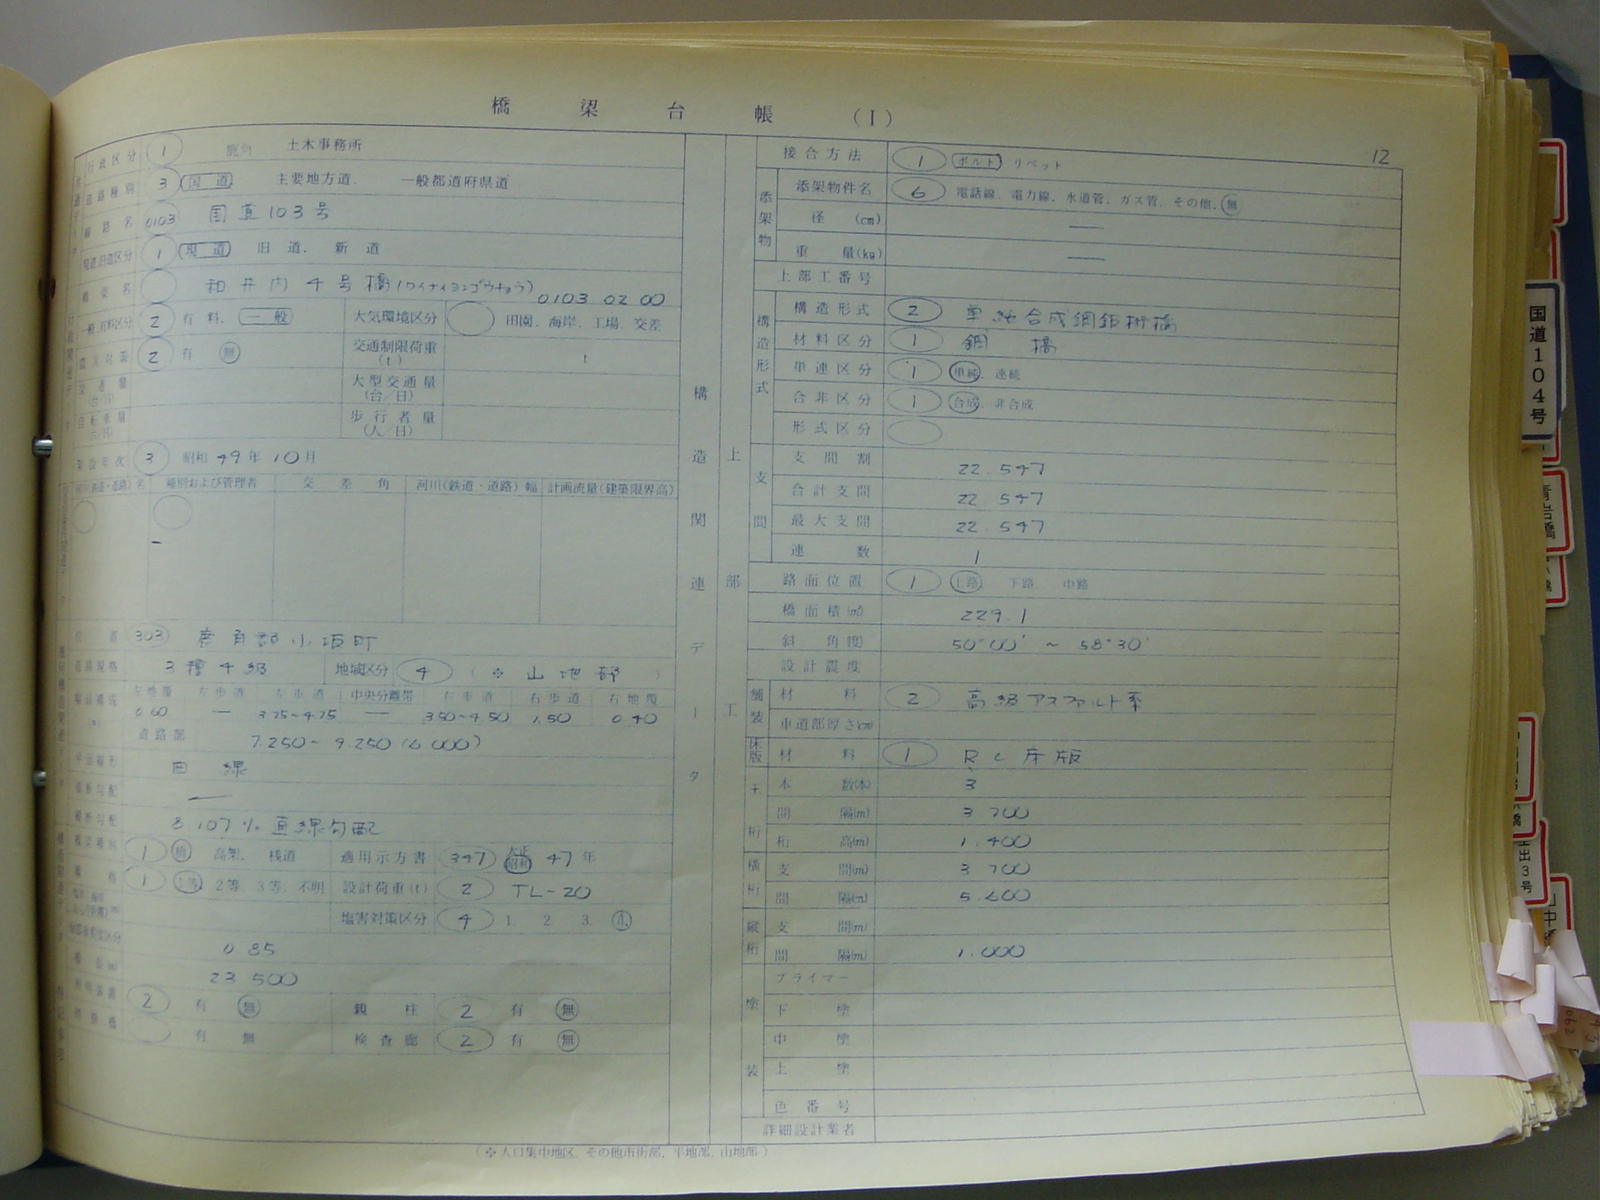 橋梁台帳 (I)
12
行政区分 1 鹿角 土木事務所
道路種別 3 国道 主要地方道. 一般都道府県道
路線名 0103 国道103号
現道旧道区分 1 現道 旧道. 新道
橋梁名 和井内4号橋(ワイナイヨンゴウキョウ)
0103 02 00
一般有料区分 2 有料. 一般 大気環境区分 田園. 海岸. 工場. 交差
2 有 無 交通制限荷重(t) t
交通量(台/日) 大型交通量(台/日)
自転車量(台/日) 歩行者量(人/日)
架設年次 3 昭和49年10月
河川(鉄道・道路)名 種別および管理者 交差角 河川(鉄道・道路)幅 計画流量(建築限界高)
303 鹿角郡小坂町
道路規格 3種4級 地域区分 4 (※ 山地部 )
幅員構成 左地覆 左歩道 左車道 中央分離帯 右車道 右歩道 右地覆
0.60 — 3.75~4.75 — 3.50~4.50 1.50 0.40
道路部 7.250~9.250(6.000)
平面線形 曲線
縦断勾配 —
横断勾配 8.107% 直線勾配
橋梁種別 1 橋 高架. 桟道 適用示方書 347 大正 昭和 47年
橋格 1 1等. 2等. 3等. 不明 設計荷重(t) 2 TL-20
塩害対策区分 4 1. 2. 3. 4.
0.85
橋長(m) 23.500
2 有 無 親柱 2 有 無
有 無 検査廊 2 有 無
(※人口集中地区. その他市街部. 平地部. 山地部)
構造関連データ
上部工
接合方法 1 ボルト リベット
添架物
添架物件名 6 電話線. 電力線. 水道管. ガス管. その他. 無
径 (cm) —
重量(kg) —
上部工番号
構造形式
構造形式 2 単純合成鋼鈑桁橋
材料区分 1 鋼橋
単連区分 1 単純. 連続
合非区分 1 合成. 非合成
形式区分
支間
支間割 22.547
合計支間 22.547
最大支間 22.547
連数 1
路面位置 1 上路. 下路. 中路
橋面積(㎡) 229.1
斜角(度) 50°00′ ~ 58°30′
設計震度
舗装
材料 2 高級アスファルト系
車道部厚さ(cm)
床版 材料 1 RC床版
主桁
本数(本) 3
間隔(m) 3.700
桁高(m) 1.400
横桁
支間(m) 3.700
間隔(m) 5.600
縦桁
支間(m)
間隔(m) 1.000
塗装
プライマー
下塗
中塗
上塗
色番号
詳細設計業者
国道104号